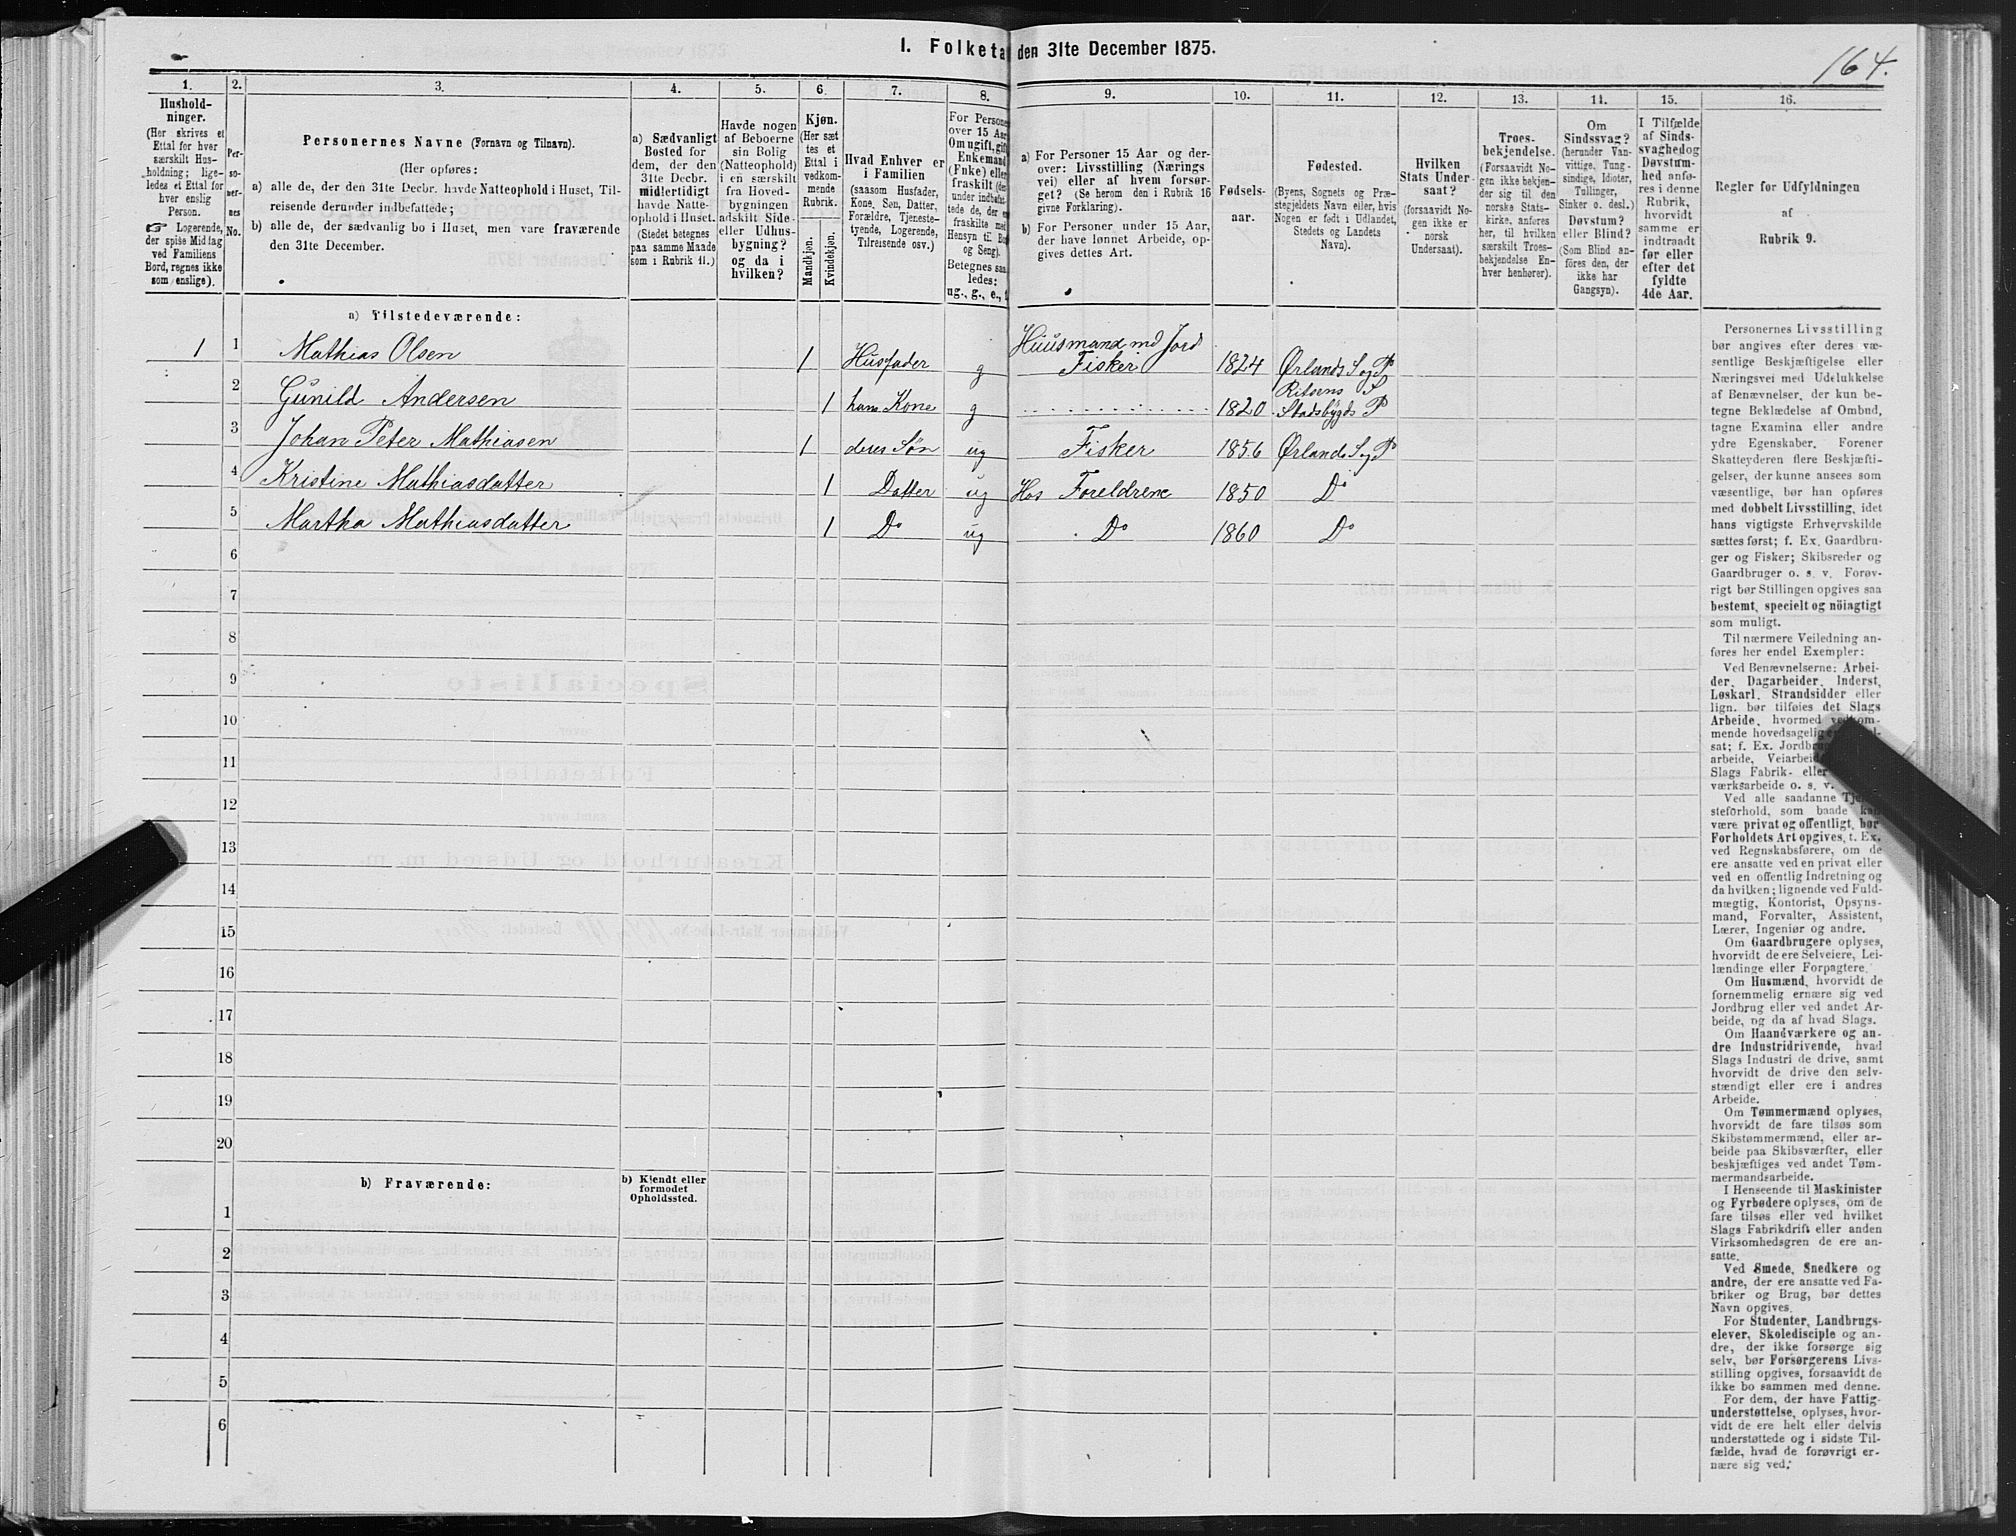 I. Folketa den 31te December 1875.
164.
1.
Hushold-
ninger.
(Her skrives et
Ettal for hver
særskilt Hus-
holdning; lige-
ledes et Ettal for
hver enslig
Person.
Logerende,
der spise Middag
ved Familiens
Bord, regnes ikke
som enslige).
2.
Per-
so-
ner-
nes
No.
3.
Personernes Navne (Fornavn og Tilnavn).
(Her opføres:
a) alle de, der den 31te Decbr. havde Natteophold i Huset, Til-
reisende derunder indbefattede;
b) alle de, der sædvanlig bo i Huset, men vare fraværende
den 31te December.
4.
a) Sædvanligt
Bosted for
dem, der den
31te Decbr.
midlertidigt
havde Natte-
ophold i Huset.
(Stedet betegnes
paa samme Maade
som i Rubrik 11.)
5.
Havde nogen
af Beboerne
sin Bolig
(Natteophold)
i en særskilt
fra Hoved-
bygningen
adskilt Side-
eller Udhus-
bygning?
og da i
hvilken?
6.
Kjøn.
(Her sæt
tes et
Ettal i
vedkom-
mende
Rubrik.
Mandkjøn.
Kvindekjøn.
7.
Hvad Enhver er
i Familien
(saasom Husfader,
Kone, Søn, Datter,
Forældre, Tjeneste-
tyende, Logerende,
Tilreisende osv.)
8.
For Persone
over 15 Aar
Om ugift, gift
Enkemand
(Enke) eller
fraskilt (de
under indbefat-
tede de, der er
fraskilte med
Hensyn til Bo
og Seng).
Betegnes saa
ledes:
ug., g., e.,
9.
a) For Personer 15 Aar og der-
over: Livsstilling (Nærings
vei) eller af hvem forsør-
get? (Se herom den i Rubrik 16
givne Forklaring).
b) For Personer under 15 Aar,
der have lønnet Arbeide, op-
gives dettes Art.
10.
Fødsels-
aar.
11.
Fødested.
(Byens, Sognets og Præ-
stegjeldets Navn eller, hvis
Nogen er født i Udlandet,
Stedets og Landets
Navn).
12.
Hvilken
Stats Under-
saat?
(forsaavidt No-
gen ikke er
norsk
Undersaat).
13.
Troes-
bekjendelse.
(Forsaavidt No-
gen ikke bekjen-
der sig til den
norske Stats-
kirke, anføres
her, til hvilken
særskilt Troes-
bekjendelse En-
hver henhører).
14.
Om
Sindssvag?
(herunder Van-
vittige, Tung-
sindige, Idioter,
Tullinger,
Sinker o. desl.)
Døvstum?
eller Blind?
(Som Blind an-
føres den, der
ikke har
Gangsyn).
15.
I Tilfælde
af Sinds-
svaghed og
Døvstum-
hed anfø-
res i denne
Rubrik,
hvorvidt
samme er
indtraadt
før eller
efter det
fyldte
4de Aar.
16.
Regler for Udfyldningen
af
Rubrik 9.
a) Tilstedeværende:
1 1 Mathias Olsen 1 Husfader g Huusmand md Jord Fisker 1824 Ørlands S og P
2 Gunild Andersen 1 hans Kone g 1820 Ritsens S Stadsbygds P
3 Johan Peter Mathiasen 1 deres Søn ug Fisker 1856 Ørlands S og P
4 Kristine Mathiasdatter 1 Datter ug Hos Foreldrene 1850 Do
5 Martha Mathiasdatter 1 Do ug Do 1860 Do
6
7
8
9
10
11
12
13
14
15
16
17
18
19
20
b) Fraværende:
b) Kjendt eller
formodet
Opholdssted.
1
2
3
4
5
6
Personernes Livsstilling
bør angives efter deres væ-
sentlige Beskjæftigelse eller
Næringsvei med Udelukkelse
af Benævnelser, der kun be-
tegne Beklædelse af Ombud,
tagne Examina eller andre
ydre Egenskaber. Forener
Skatteyderen flere Beskjæfti-
gelser, der kunne ansees som
væsentlige, bør han opføres
med dobbelt Livsstilling, idet
hans vigtigste Erhvervskilde
sættes først; f. Ex. Gaardbru-
ger og Fisker; Skibsreder og
Gaardbruger o. s. v. Forøv-
rigt bør Stillingen opgives saa
bestemt, specielt og nöiagtigt
som muligt.
Til nærmere Veiledning an-
føres her endel Exempler:
Ved Benævnelserne: Arbei-
der, Dagarbeider, Inderst,
Løskarl, Strandsidder eller
lign. bør tilføies det Slags
Arbeide, hvormed vedkom-
mende hovedsagelig er
sat; f. Ex. Jordbru
arbeide, Veiarbeid
Slags Fabrik- eller
værksarbeide o. s. v.
Ved alle saadanne Tjene-
steforhold, som baade kan
være privat og offentligt, bør
Forholdets Art opgives, t. Ex.
ved Regnskabsførere, om de
ere ansatte ved en privat eller
ved en offentlig Indretning og
da hvilken; lignende ved Fuld-
mægtig, Kontorist, Opsyns-
mand, Forvalter, Assistent,
Lærer, Ingeniør og andre.
Om Gaardbrugere oplyses,
hvorvidt de ere Selveiere, Lei-
lændinge eller Forpagtere.
Om Husmænd, hvorvidt de
fornemmelig ernære sig ved
Jordbrug eller ved andet Ar-
beide, og da af hvad Slags.
Om Haandværkere og an-
dre Industridrivende, hvad
Slags Industri de drive, samt
hvorvidt de drive den selv-
stændigt eller ere i andres
Arbeide.
Om Tømmermænd oplyses,
hvorvidt de fare tilsøs som
Skibstømmermænd, eller ar-
beide paa Skibsværfter, eller
beskjæftiges ved andet Tøm-
mermandsarbeide.
I Henseende til Maskinister
og Fyrbødere oplyses, om de
fare tilsøs eller ved hvilket
Slags Fabrikdrift eller anden
Virksomhedsgren de ere an-
satte.
Ved Smede, Snedkere og
andre, der ere ansatte ved Fa-
briker og Brug, bør dettes
Navn opgives.
For Studenter, Landbrugs-
elever, Skoledisciple og an-
dre, der ikke forsørge sig
selv, bør Forsørgerens Livs-
stilling opgives, forsaavidt de
ikke bo sammen med denne.
For dem, der have Fattig-
understøttelse, oplyses, hvor-
vidt de ere helt eller delvis
understøttede og i sidste Til-
fælde, hvad de forøvrigt er-
nære sig ved.